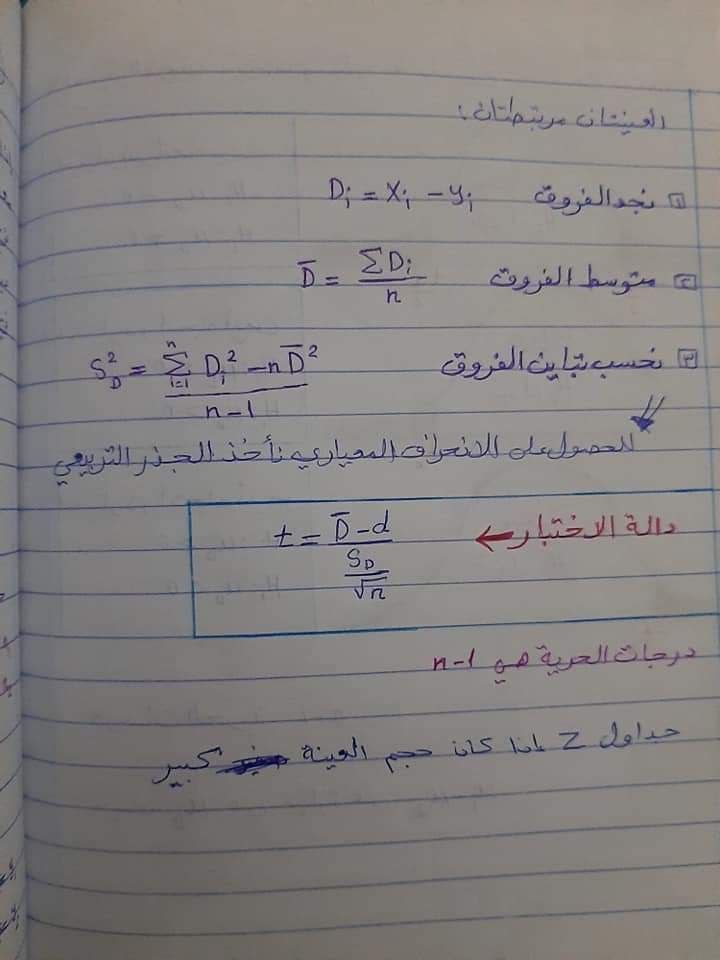 العينتان مرتبطتان:
1 نجد الفروق Di = xi - yi
2 متوسط الفروق D̄ = ΣDi / n
3 نحسب تباين الفروق S²D = (Σⁿi=1 Di² - nD̄²) / (n-1)
للحصول على الانحراف المعياري نأخذ الجذر التربيعي
دالة الاختبار ← t = (D̄ - d) / (SD / √n)
درجات الحرية هي n-1
جداول Z اذا كان حجم العينة كبير